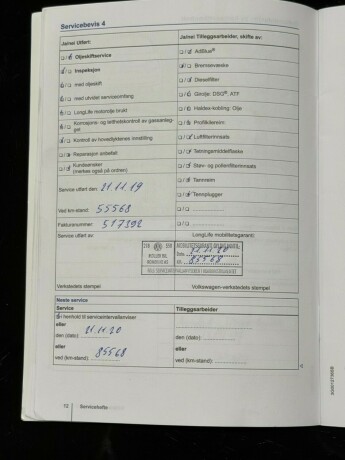 Servicebevis 4
Ja/nei Utført:
Ja/nei Tilleggsarbeider, skifte av:
Oljeskiftservice
AdBlue®
Inspeksjon
Bremsevæske
med oljeskift
Dieselfilter
med utvidet serviceomfang
Girolje: DSG®, ATF
LongLife motorolje brukt
Haldex-kobling: Olje
Korrosjons- og tetthetskontroll av gassanlegget
Profilkilerem
Kontroll av hovedlyktenes innstilling
Luftfilterinnsats
Reparasjon anbefalt
Tetningsmiddelflaske
Kundeønsker
(merkes også på ordren)
Støv- og pollenfilterinnsats
Tannrem
Service utført den: 21.11.19
Tennplugger
Ved km-stand: 55568
Fakturanummer: 517392
Service utført av
LongLife mobilitetsgaranti:
MØLLER BIL
Dato 21.11.20
85568
Verkstedets stempel
Volkswagen-verkstedets stempel
Neste service
Service
Tilleggsarbeider
i henhold til serviceintervallanviser
eller
den (dato): 21.11.20
den (dato):
eller
eller
ved (km-stand): 85568
ved (km-stand):
12
Servicehefte